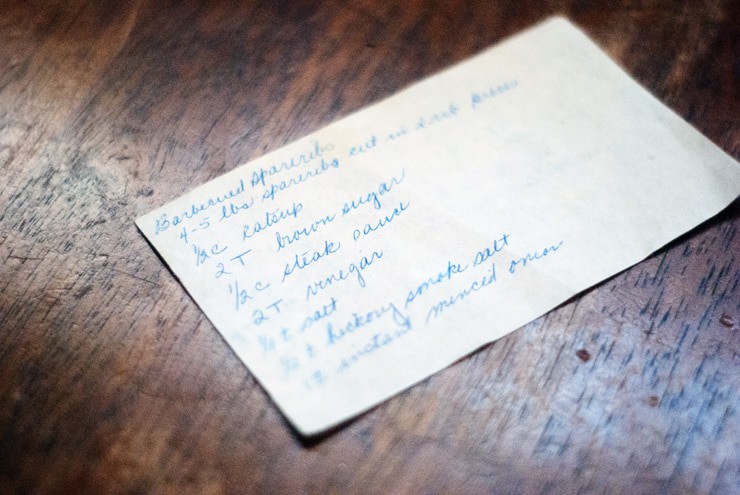 Barbecued Spareribs
4-5 lbs spareribs cut in 2 rib pieces
1/2c catsup
2 T brown sugar
1/2c steak sauce
2 T vinegar
t salt
t hickory smoke salt
instant minced onion